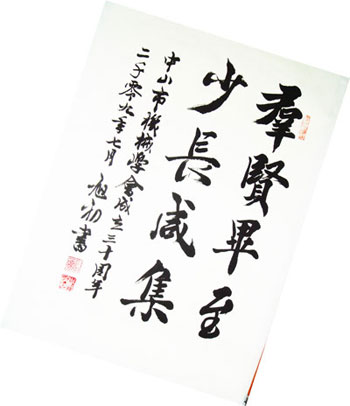 羣賢畢至
少長咸集
中山市機械學會成立三十周年
二千零九年七月 旭初書